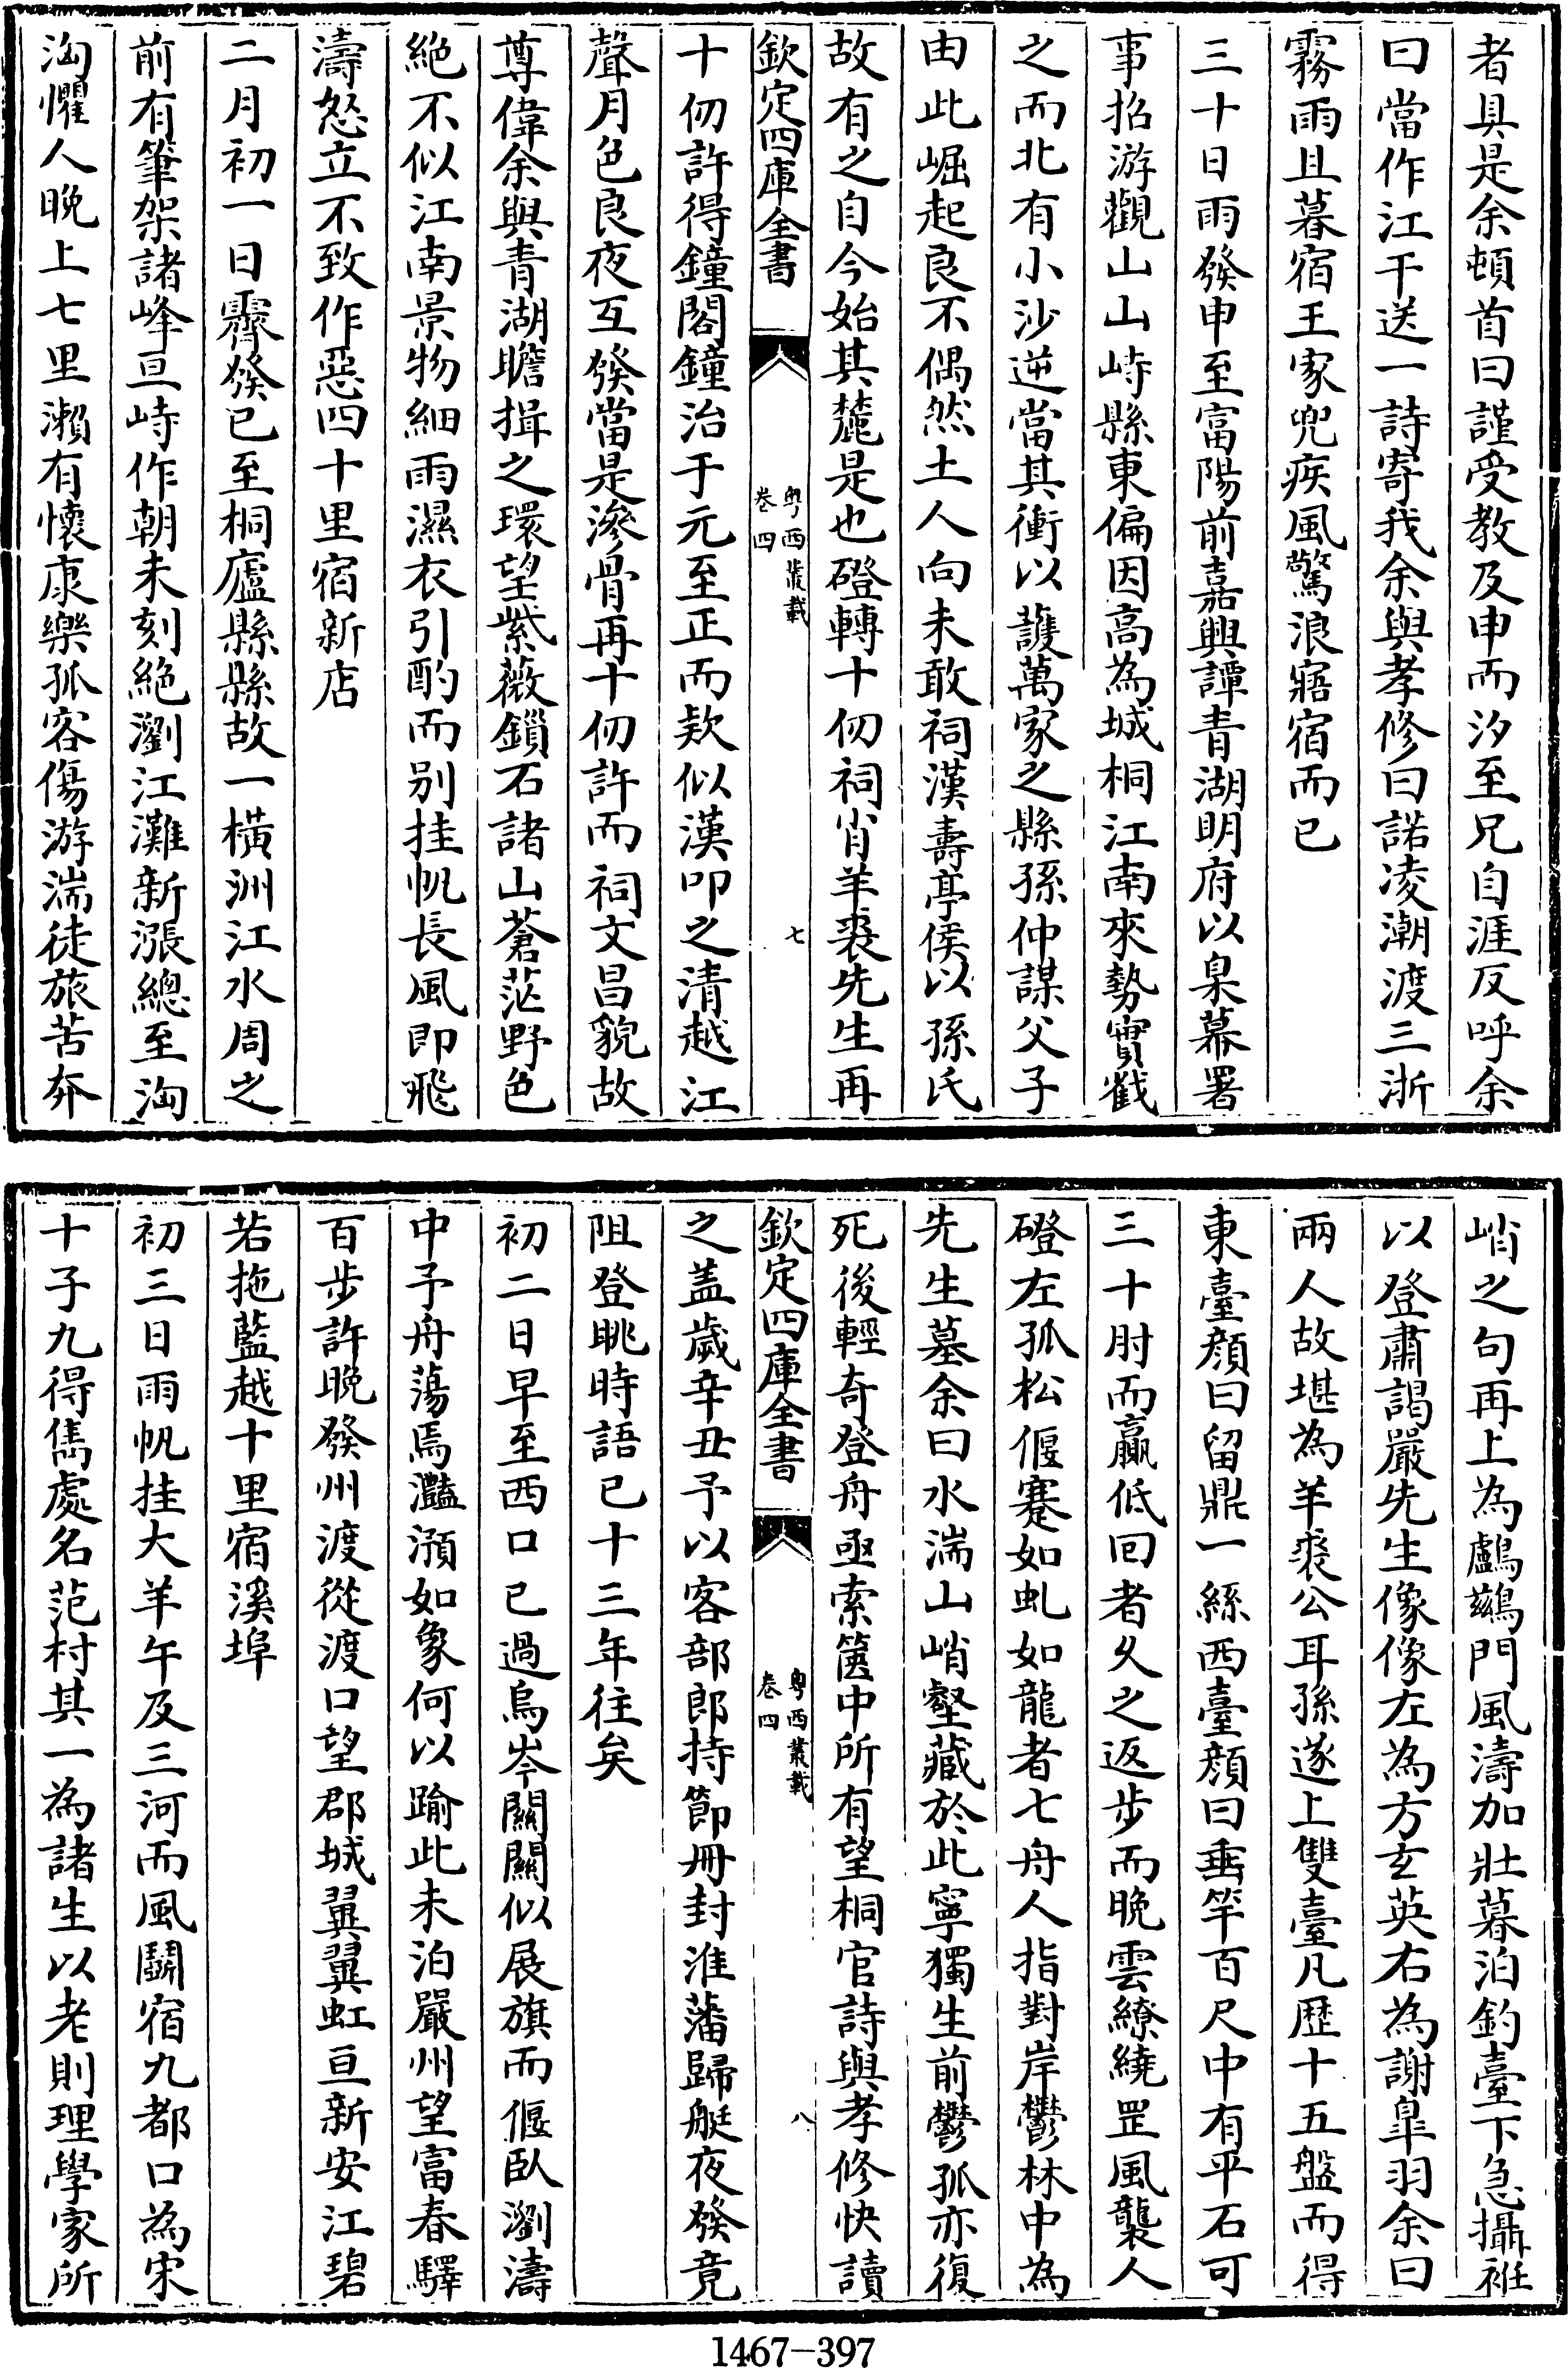 者具是余頓首曰謹受教及申而汐至兄自涯反呼余
曰當作江干送一詩寄我余與孝修曰諾凌潮渡三浙
霧雨且暮宿王家兜疾風驚浪寤宿而已
三十日雨發申至富陽前嘉興譚青湖明府以臬幕署
事招游觀山山峙縣東偏因高為城桐江南來勢實截
之而北有小沙逆當其衝以護萬家之縣孫仲謀父子
由此崛起良不偶然土人向未敢祠漢壽亭侯以孫氏
故有之自今始其麓是也磴轉十仞祠肖羊裘先生再
欽定四庫全書
粤西叢載
卷四
七
十仞許得鐘閣鐘治于元至正而欵似漢叩之清越江
聲月色良夜互發當是滲骨再十仞許而祠文昌貌故
尊偉余與青湖瞻揖之環望紫薇鎻石諸山蒼茫野色
絶不似江南景物細雨濕衣引酌而别挂帆長風即飛
濤怒立不致作惡四十里宿新店
二月初一日霽發已至桐廬縣縣故一橫洲江水周之
前有筆架諸峰亘峙作朝未刻絶瀏江灘新漲總至洶
洶懼人晚上七里瀨有懷康樂孤客傷游湍徒旅苦奔
峭之句再上為鸕鷀門風濤加壯暮泊釣臺下急攝袵
以登肅謁嚴先生像像左為方玄英右為謝皐羽余曰
兩人故堪為羊裘公耳孫遂上雙臺凡歴十五盤而得
東臺顔曰留鼎一絲西臺顔曰垂竿百尺中有平石可
三十肘而贏低回者乆之返步而晚雲繚繞罡風襲人
磴左孤松偃蹇如虬如龍者七舟人指對岸鬱林中為
先生墓余曰水湍山峭壑藏於此寧獨生前鬱孤亦復
死後輕奇登舟亟索篋中所有望桐官詩與孝修快讀
欽定四庫全書
粤西叢載
卷四
八
之盖歲辛丑予以客部郎持節冊封淮藩歸艇夜發竟
阻登眺時語已十三年往矣
初二日早至西口已過烏岑關關似展旗而偃臥瀏濤
中予舟蕩焉灩澦如象何以踰此未泊嚴州望富春驛
百步許晚發州渡從渡口望郡城翼翼虹亘新安江碧
若拖藍越十里宿溪埠
初三日雨帆挂大羊午及三河而風鬭宿九都口為宋
十子九得雋處名范村其一為諸生以老則理學家所
1467-397